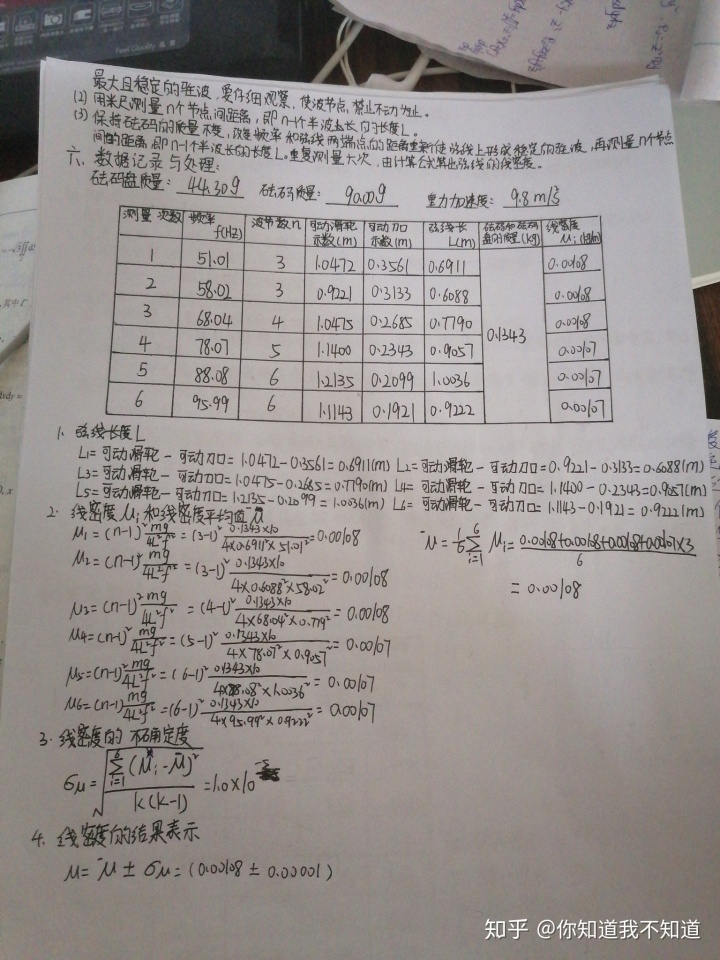 最大且稳定的驻波,要仔细观察,使波节点,禁止不动为止。
(2) 用米尺测量n个节点间距离,即n-1个半波长的长度L。
(3) 保持砝码的质量不变,改变频率和弦线两端点的距离重新使弦线上形成稳定的驻波,再测量n个节点
间的距离,即n-1个半波长的长度L。重复测量六次,由计算公式算出弦线的线密度。
六、数据记录与处理:
砝码盘质量: 44.30g 砝码质量: 90.00g 重力加速度: 9.8m/s²
测量次数 频率f(HZ) 波节数n 可动滑轮示数(m) 可动刀口示数(m) 弦线长L(m) 砝码和砝码盘的质量(kg) 线密度μi(kg/m)
1 51.01 3 1.0472 0.3561 0.6911 0.1343 0.00108
2 58.02 3 0.9221 0.3133 0.6088 0.00108
3 68.04 4 1.0475 0.2685 0.7790 0.00108
4 78.07 5 1.1400 0.2343 0.9057 0.00107
5 88.08 6 1.2135 0.2099 1.0036 0.00107
6 95.99 6 1.1143 0.1921 0.9222 0.00107
1. 弦线长度L
L1=可动滑轮-可动刀口=1.0472-0.3561=0.6911(m) L2=可动滑轮-可动刀口=0.9221-0.3133=0.6088(m)
L3=可动滑轮-可动刀口=1.0475-0.2685=0.7790(m) L4=可动滑轮-可动刀口=1.1400-0.2343=0.9057(m)
L5=可动滑轮-可动刀口=1.2135-0.2099=1.0036(m) L6=可动滑轮-可动刀口=1.1143-0.1921=0.9222(m)
2. 线密度μi和线密度平均值μ̄
μ1=(n-1)²mg/4L²f²=(3-1)²0.1343×10/4×0.6911²×51.01²=0.00108 μ̄=1/6∑(i=1→6)μi=0.00108+0.00108+0.00108+0.00107×3/6
μ2=(n-1)²mg/4L²f²=(3-1)²0.1343×10/4×0.6088²×58.02²=0.00108 =0.00108
μ3=(n-1)²mg/4L²f²=(4-1)²0.1343×10/4×68.04²×0.779²=0.00108
μ4=(n-1)²mg/4L²f²=(5-1)²0.1343×10/4×78.07²×0.9057²=0.00107
μ5=(n-1)²mg/4L²f²=(6-1)²0.1343×10/4×88.08²×1.0036²=0.00107
μ6=(n-1)²mg/4L²f²=(6-1)²0.1343×10/4×95.99²×0.9222²=0.00107
3. 线密度的不确定度
σμ=√(∑(i=1→6)(μi-μ̄)²/k(k-1))=1.0×10⁻⁵
4. 线密度的结果表示
μ=μ̄±σμ=(0.00108±0.00001)
知乎 @你知道我不知道